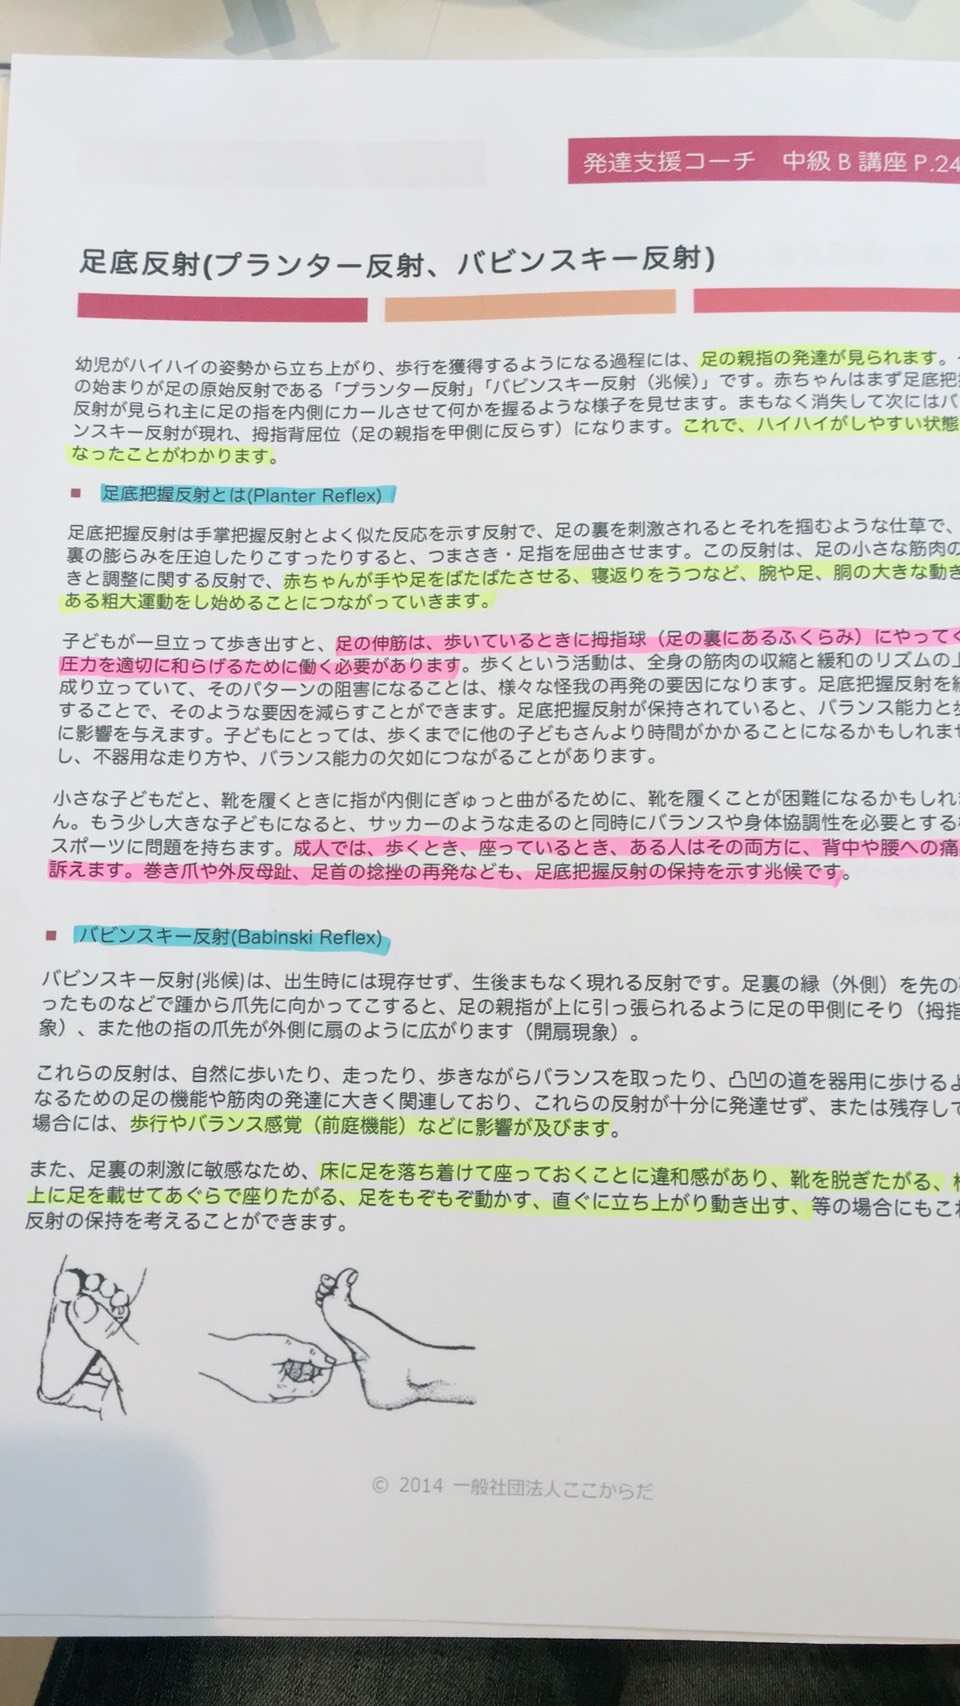 発達支援コーチ　中級 B 講座 P.24
足底反射(プランター反射、バビンスキー反射)
幼児がハイハイの姿勢から立ち上がり、歩行を獲得するようになる過程には、足の親指の発達が見られます。
の始まりが足の原始反射である「プランター反射」「バビンスキー反射（兆候）」です。赤ちゃんはまず足底把
反射が見られ主に足の指を内側にカールさせて何かを握るような様子を見せます。まもなく消失して次にはバ
ンスキー反射が現れ、拇指背屈位（足の親指を甲側に反らす）になります。これで、ハイハイがしやすい状態
なったことがわかります。
■ 足底把握反射とは(Planter Reflex)
足底把握反射は手掌把握反射とよく似た反応を示す反射で、足の裏を刺激されるとそれを掴むような仕草で、
裏の膨らみを圧迫したりこすったりすると、つまさき・足指を屈曲させます。この反射は、足の小さな筋肉の
きと調整に関する反射で、赤ちゃんが手や足をばたばたさせる、寝返りをうつなど、腕や足、胴の大きな動き
ある粗大運動をし始めることにつながっていきます。
子どもが一旦立って歩き出すと、足の伸筋は、歩いているときに拇指球（足の裏にあるふくらみ）にやってく
圧力を適切に和らげるために働く必要があります。歩くという活動は、全身の筋肉の収縮と緩和のリズムの上
成り立っていて、そのパターンの阻害になることは、様々な怪我の再発の要因になります。足底把握反射を
することで、そのような要因を減らすことができます。足底把握反射が保持されていると、バランス能力と歩
に影響を与えます。子どもにとっては、歩くまでに他の子どもさんより時間がかかることになるかもしれませ
し、不器用な走り方や、バランス能力の欠如につながることがあります。
小さな子どもだと、靴を履くときに指が内側にぎゅっと曲がるために、靴を履くことが困難になるかもしれま
ん。もう少し大きな子どもになると、サッカーのような走るのと同時にバランスや身体協調性を必要とする
スポーツに問題を持ちます。成人では、歩くとき、座っているとき、ある人はその両方に、背中や腰への痛
訴えます。巻き爪や外反母趾、足首の捻挫の再発なども、足底把握反射の保持を示す兆候です。
■ バビンスキー反射(Babinski Reflex)
バビンスキー反射(兆候)は、出生時には現存せず、生後まもなく現れる反射です。足裏の縁（外側）を先の
ったものなどで踵から爪先に向かってこすると、足の親指が上に引っ張られるように足の甲側にそり（拇指
象）、また他の指の爪先が外側に扇のように広がります（開扇現象）。
これらの反射は、自然に歩いたり、走ったり、歩きながらバランスを取ったり、凸凹の道を器用に歩けるよ
なるための足の機能や筋肉の発達に大きく関連しており、これらの反射が十分に発達せず、または残存して
場合には、歩行やバランス感覚（前庭機能）などに影響が及びます。
また、足裏の刺激に敏感なため、床に足を落ち着けて座っておくことに違和感があり、靴を脱ぎたがる、
上に足を載せてあぐらで座りたがる、足をもぞもぞ動かす、直ぐに立ち上がり動き出す、等の場合にもこれ
反射の保持を考えることができます。
© 2014 一般社団法人ここからだ